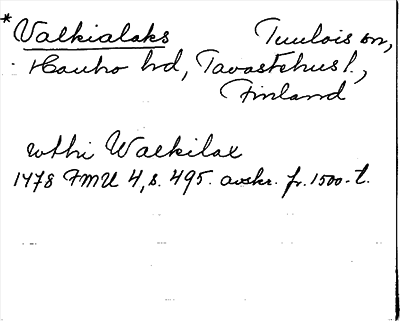 * Valkialaks Tuulois sn,
Hauho hd, Tavastehus l.,
Finland
uthi Walkilax
1478 FMU 4, s. 495. avskr. fr. 1500-t.